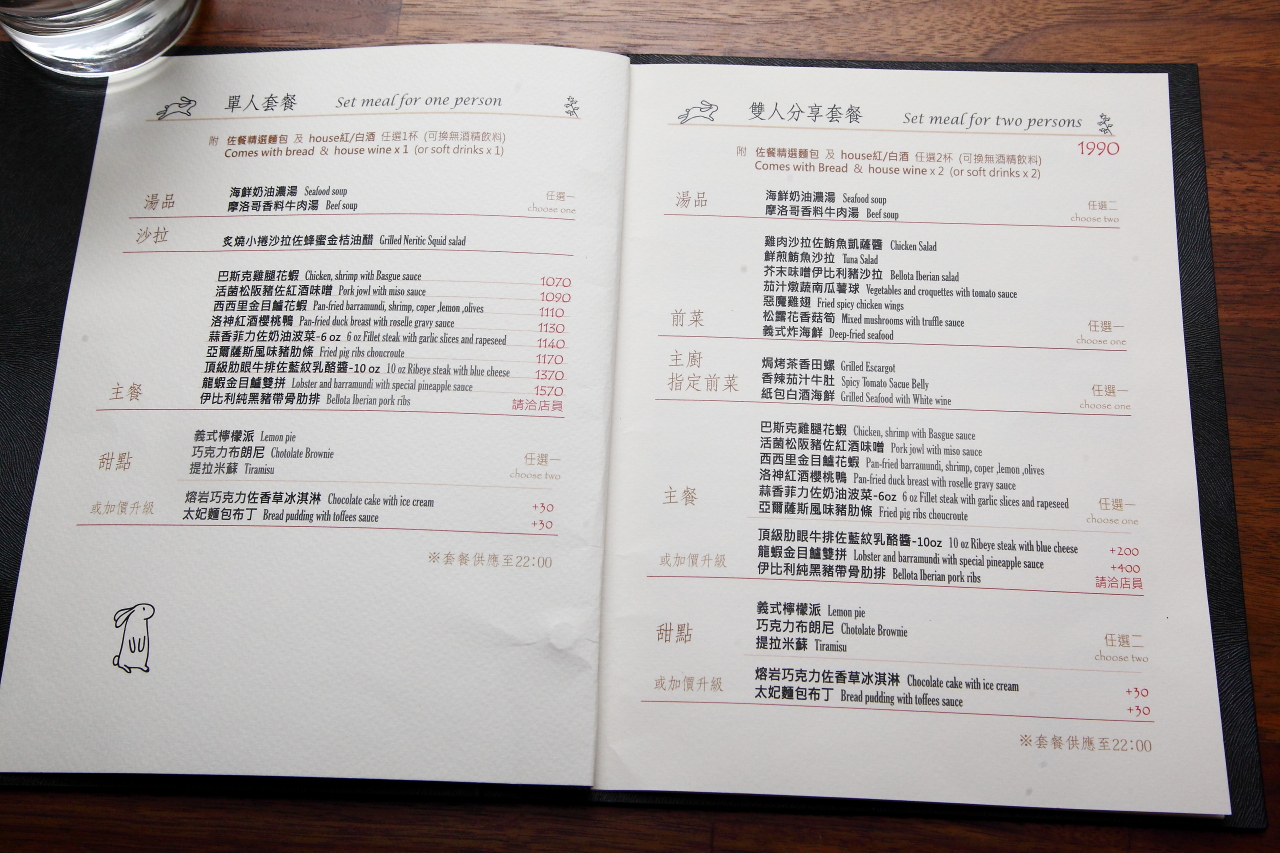 單人套餐 Set meal for one person
附 佐餐精選麵包 及 house紅/白酒 任選1杯 (可換無酒精飲料)
Comes with bread & house wine x 1 (or soft drinks x 1)
湯品
海鮮奶油濃湯 Seafood soup
摩洛哥香料牛肉湯 Beef soup
任選一
choose one
沙拉
炙燒小捲沙拉佐蜂蜜金桔油醋 Grilled Neritic Squid salad
巴斯克雞腿花蝦 Chicken, shrimp with Basgue sauce 1070
活菌松阪豬佐紅酒味噌 Pork jowl with miso sauce 1090
西西里金目鱸花蝦 Pan-fried barramundi, shrimp, coper ,lemon ,olives 1110
洛神紅酒櫻桃鴨 Pan-fried duck breast with roselle gravy sauce 1130
蒜香菲力佐奶油波菜-6 oz 6 oz Fillet steak with garlic slices and rapeseed 1140
亞爾薩斯風味豬肋條 Fried pig ribs choucroute 1170
頂級肋眼牛排佐藍紋乳酪醬-10 oz 10 oz Ribeye steak with blue cheese 1370
龍蝦金目鱸雙拼 Lobster and barramundi with special pineapple sauce 1570
主餐
伊比利純黑豬帶骨肋排 Bellota Iberian pork ribs 請洽店員
甜點
義式檸檬派 Lemon pie
巧克力布朗尼 Chotolate Brownie
提拉米蘇 Tiramisu
任選一
choose two
或加價升級
熔岩巧克力佐香草冰淇淋 Chocolate cake with ice cream +30
太妃麵包布丁 Bread pudding with toffees sauce +30
※套餐供應至22:00
雙人分享套餐 Set meal for two persons
1990
附 佐餐精選麵包 及 house紅/白酒 任選2杯 (可換無酒精飲料)
Comes with Bread & house wine x 2 (or soft drinks x 2)
湯品
海鮮奶油濃湯 Seafood soup
摩洛哥香料牛肉湯 Beef soup
任選二
choose two
雞肉沙拉佐鯷魚凱薩醬 Chicken Salad
鮮煎鮪魚沙拉 Tuna Salad
芥末味噌伊比利豬沙拉 Bellota Iberian salad
茄汁燉蔬南瓜薯球 Vegetables and croquettes with tomato sauce
惡魔雞翅 Fried spicy chicken wings
松露花香菇筍 Mixed mushrooms with truffle sauce
義式炸海鮮 Deep-fried seafood
前菜
任選一
choose one
主廚
指定前菜
焗烤茶香田螺 Grilled Escargot
香辣茄汁牛肚 Spicy Tomato Sacue Belly
紙包白酒海鮮 Grilled Seafood with White wine
任選一
choose one
巴斯克雞腿花蝦 Chicken, shrimp with Basgue sauce
活菌松阪豬佐紅酒味噌 Pork jowl with miso sauce
西西里金目鱸花蝦 Pan-fried barramundi, shrimp, coper ,lemon ,olives
洛神紅酒櫻桃鴨 Pan-fried duck breast with roselle gravy sauce
蒜香菲力佐奶油波菜-6oz 6 oz Fillet steak with garlic slices and rapeseed
亞爾薩斯風味豬肋條 Fried pig ribs choucroute
主餐
任選一
choose one
或加價升級
頂級肋眼牛排佐藍紋乳酪醬-10oz 10 oz Ribeye steak with blue cheese +200
龍蝦金目鱸雙拼 Lobster and barramundi with special pineapple sauce +400
伊比利純黑豬帶骨肋排 Bellota Iberian pork ribs 請洽店員
甜點
義式檸檬派 Lemon pie
巧克力布朗尼 Chotolate Brownie
提拉米蘇 Tiramisu
任選二
choose two
或加價升級
熔岩巧克力佐香草冰淇淋 Chocolate cake with ice cream +30
太妃麵包布丁 Bread pudding with toffees sauce +30
※套餐供應至22:00